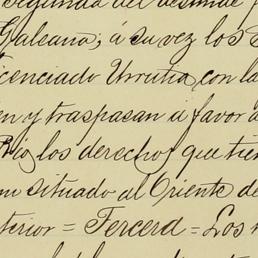 Segunda del deslinde
Galeana; á su vez los
icenciado Urrutia, con la
en y traspasan á favor d
Rio los derechos que tien
m situado al Oriente de
terior = Tercera = Los